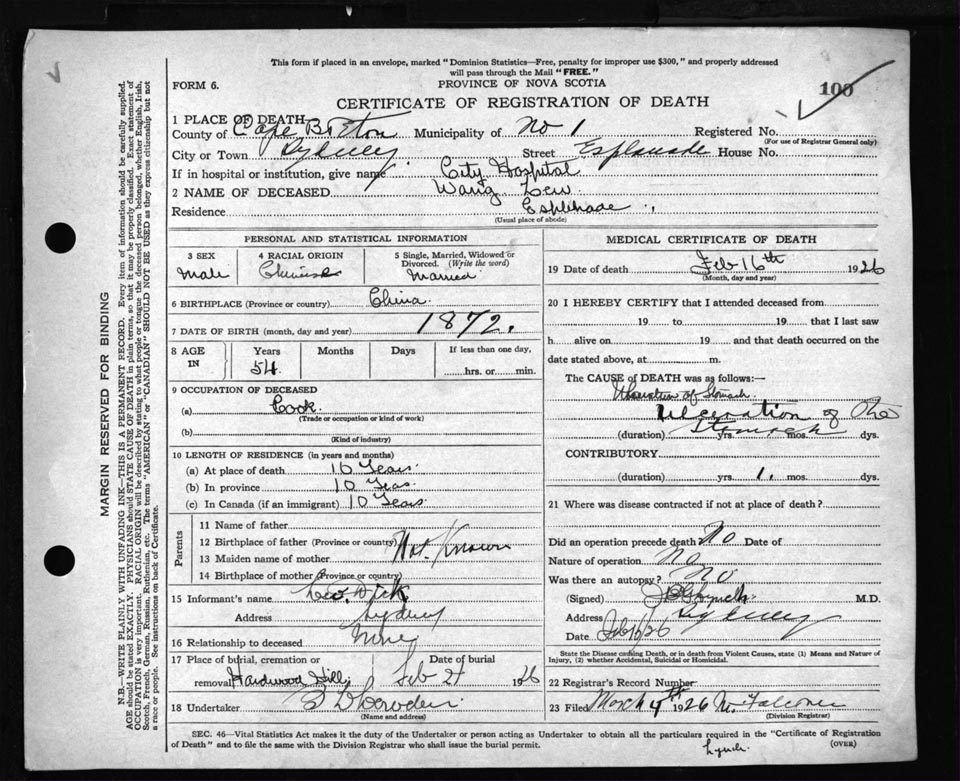 This form if placed in an envelope, marked "Dominion Statistics—Free, penalty for improper use $300," and properly addressed
will pass through the Mail "FREE."
FORM 6.
PROVINCE OF NOVA SCOTIA
100
CERTIFICATE OF REGISTRATION OF DEATH
1 PLACE OF DEATH
County of Cape Breton Municipality of No 1 Registered No.
(For use of Registrar General only)
City or Town Sydney Street Esplanade House No.
If in hospital or institution, give name City Hospital
2 NAME OF DECEASED Wang Lew
Residence Esplenade
(Usual place of abode)
PERSONAL AND STATISTICAL INFORMATION
3 SEX
Male
4 RACIAL ORIGIN
Chinese
5 Single, Married, Widowed or
Divorced. (Write the word)
Married
6 BIRTHPLACE (Province or country) China
7 DATE OF BIRTH (month, day and year) 1872.
8 AGE
IN
Years
54
Months
Days
If less than one day,
hrs. or min.
9 OCCUPATION OF DECEASED
(a) Cook
(Trade or occupation or kind of work)
(b)
(Kind of industry)
10 LENGTH OF RESIDENCE (in years and months)
(a) At place of death 10 Years
(b) In province 10 Yeas
(c) In Canada (if an immigrant) 10 Years
Parents
11 Name of father
12 Birthplace of father (Province or country) Not Known
13 Maiden name of mother
14 Birthplace of mother (Province or country)
15 Informant's name Dick
Address Sydney
16 Relationship to deceased None
17 Place of burial, cremation or
removal Hardwood Hill
Date of burial
Feb 21 1926
18 Undertaker
(Name and address)
MEDICAL CERTIFICATE OF DEATH
19 Date of death Feb 16th 1926
(Month, day and year)
20 I HEREBY CERTIFY that I attended deceased from
19 to 19 that I last saw
h alive on 19 and that death occurred on the
date stated above, at m.
The CAUSE of DEATH was as follows:—
Ulceration of Stomach
Ulceration of the
Stomach
(duration) yrs. mos. dys.
CONTRIBUTORY
(duration) yrs. 1. mos. dys.
21 Where was disease contracted if not at place of death?
Did an operation precede death No Date of
Nature of operation No
Was there an autopsy? No
(Signed) Lynch M.D.
Address Sydney
Date Feb 26
State the Disease causing Death, or in death from Violent Causes, state (1) Means and Nature of
Injury, (2) whether Accidental, Suicidal or Homicidal.
22 Registrar's Record Number
23 Filed March 4th 1926 Falconer
(Division Registrar)
SEC. 46—Vital Statistics Act makes it the duty of the Undertaker or person acting as Undertaker to obtain all the particulars required in the "Certificate of Registration
of Death" and to file the same with the Division Registrar who shall issue the burial permit.
Lynch
(OVER)
MARGIN RESERVED FOR BINDING
N.B.—WRITE PLAINLY WITH UNFADING INK—THIS IS A PERMANENT RECORD. Every item of information should be carefully supplied.
AGE should be stated EXACTLY. PHYSICIANS should STATE CAUSE OF DEATH in plain terms, so that it may be properly classified. Exact statement of
OCCUPATION is very important. RACIAL ORIGIN will be described by stating to what people or tongue the deceased person belonged, whether English, Irish,
Scotch, French, German, Russian, Ruthenian, etc. The terms "AMERICAN" or "CANADIAN" SHOULD NOT BE USED as they express citizenship but not
a race or people. See instructions on back of Certificate.